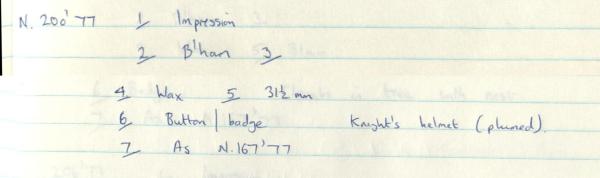 N. 200'77 1 Impression
2 B'ham 3
4 Wax 5 31½ mm
6 Button / badge Knight's helmet (plumed).
7 As N.167'77